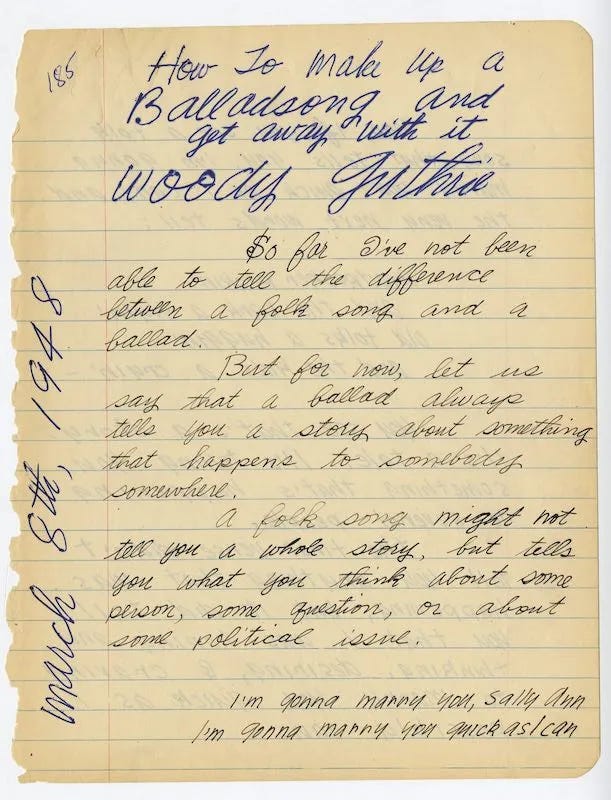 185
How To make up a
Balladsong and
get away with it
Woody Guthrie
So far I've not been
able to tell the difference
between a folk song and a
ballad.
But for now, let us
say that a ballad always
tells you a story about something
that happens to somebody
somewhere.
A folk song might not
tell you a whole story, but tells
you what you think about some
person, some question, or about
some political issue.
I'm gonna marry you, Sally Ann
I'm gonna marry you quick as I can
march 8th, 1948